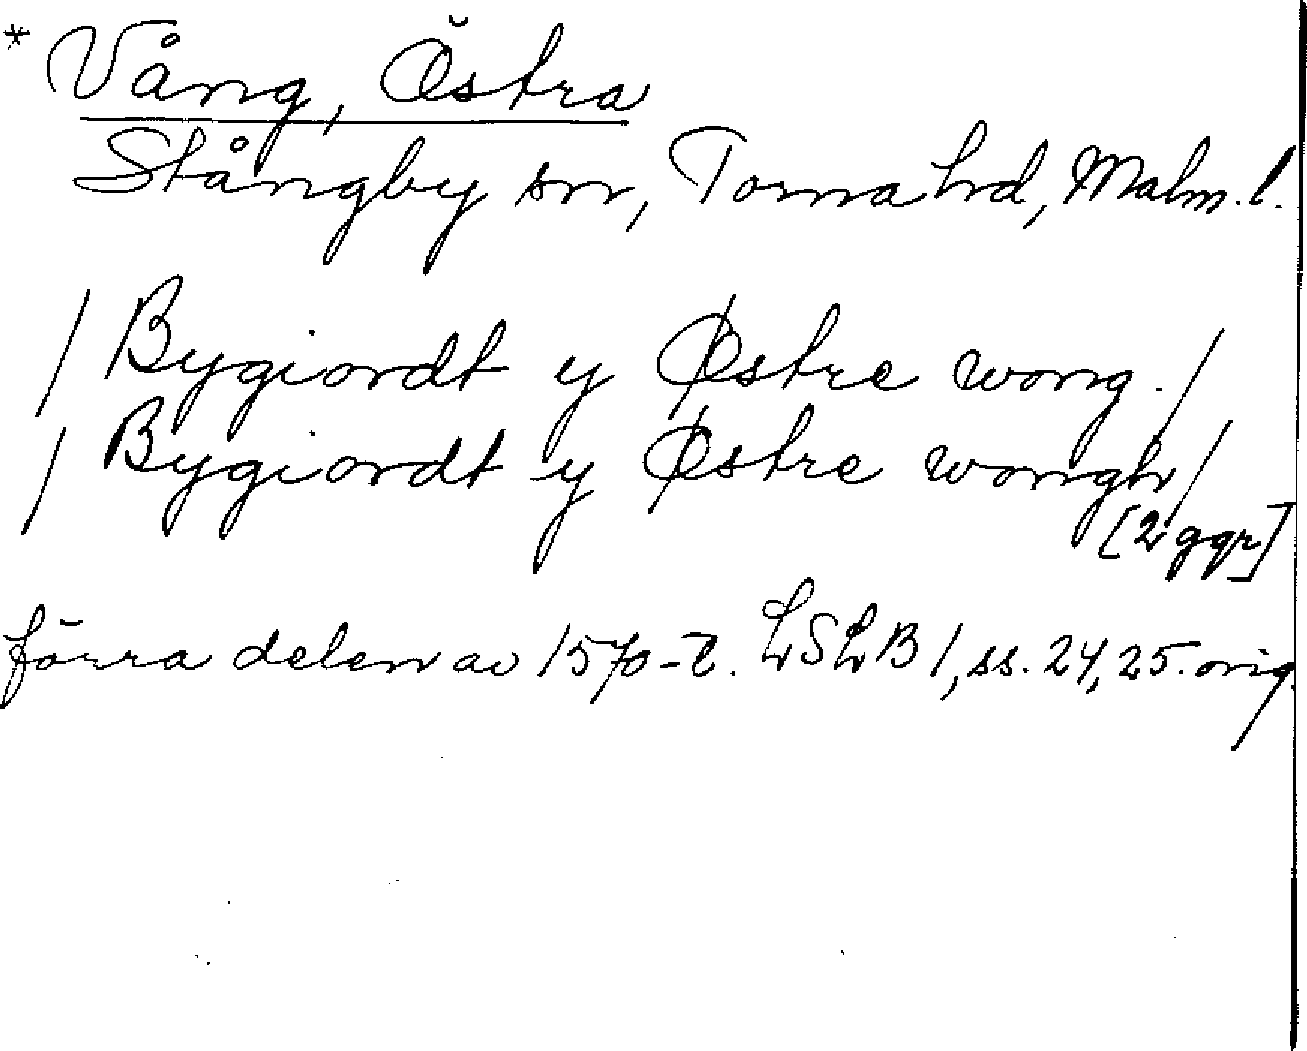 * Vång, Östra
Stångby sn, Torna hd, Malm. l.
/ Bygiordt y Østre wong. /
/ Bygiordt y Østre wongh /
[2 ggr]
förra delen av 1570-t. LSLB 1, ss. 24, 25. orig.